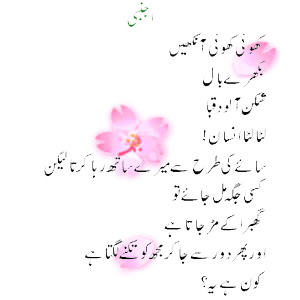 اجنبی
کھوئی کھوئی آنکھیں
بکھرے بال
شکن آلود قبا
لٹا لٹا انسان!
سائے کی طرح سے میرے ساتھ رہا کرتا لیکن
کسی جگہ مل جائے تو
گھبرا کے مڑ جاتا ہے
اور پھر دور سے جا کر مجھ کو تکنے لگتا ہے
کون ہے یہ؟